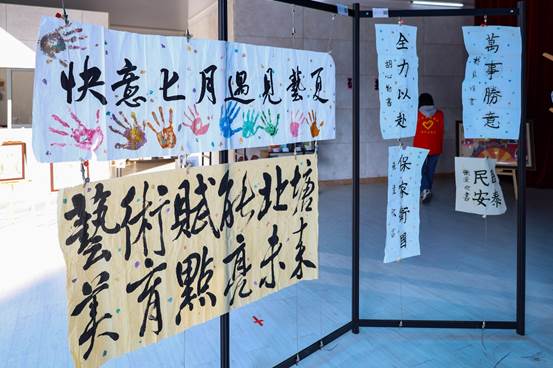 快意七月遇見藝夏
藝術賦能北塘
美育點亮未来
全力以赴
保家衛国
萬事勝意
民安
泰